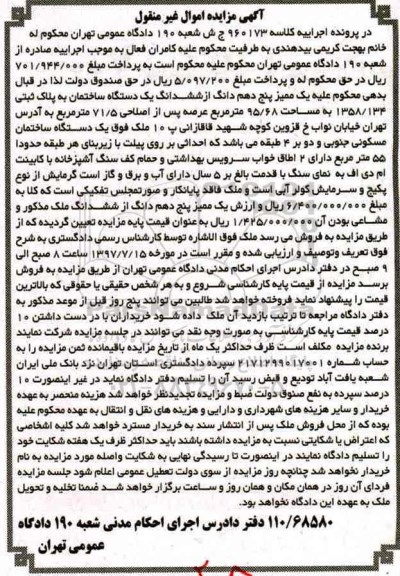 آگهی مزایده اموال غیر منقول
در پرونده اجراییه کلاسه ۹۶۰۱۷۳ ج ش شعبه ۱۹۰ دادگاه عمومی تهران محکوم له
خانم بهجت کریمی بیدهندی به طرفیت محکوم علیه کامران فعال به موجب اجراییه صادره از
شعبه ۱۹۰ دادگاه عمومی تهران محکوم علیه محکوم است به پرداخت مبلغ ۷۰۱/۹۴۴/۰۰۰
ریال در حق محکوم له و پرداخت مبلغ ۵/۰۹۷/۲۰۰ ریال در حق صندوق دولت لذا در قبال
بدهی محکوم علیه یک ممیز پنج دهم دانگ ازششدانگ یک دستگاه ساختمان به پلاک ثبتی
۱۳۵۸/۱۳۴ به مساحت ۹۵/۶۸ مترمربع عرصه پس از اصلاحی ۷۱/۵ مترمربع به آدرس
تهران خیابان نواب خ قزوین کوچه شهید قاقازانی پ ۱۰ ملک فوق یک دستگاه ساختمان
مسکونی جنوبی و دو بر ۴ طبقه می باشد که احداثی بر روی پیلت با زیربنای هر طبقه حدودا
۵۵ متر مربع دارای ۲ اطاق خواب سرویس بهداشتی و حمام کف سنگ آشپزخانه با کابینت
ام دی اف به نمای سنگ با قدمت بالغ بر ۵ سال دارای آب و برق و گاز است گرمایش از نوع
پکیج و سرمایش کولر آبی است و ملک فاقد پایانکار و صورتمجلس تفکیکی است که کلا به
مبلغ ۶/۴۰۰/۰۰۰/۰۰۰ ریال و ارزش یک ممیز پنج دهم دانگ از ششدانگ ملک مذکور و
مشاعی بودن آن ۱/۴۲۵/۰۰۰/۰۰۰ ریال به عنوان قیمت پایه مزایده تعیین گردیده که از
طریق مزایده به فروش می رسد ملک فوق الاشاره توسط کارشناس رسمی دادگستری به شرح
فوق تعریف وتوصیف و ارزیابی شده و مقرر است در مورخه ۱۳۹۷/۷/۱۵ ساعت ۸ صبح الی
۹ صبح در دفتر دادرس اجرای احکام مدنی دادگاه عمومی تهران از طریق مزایده به فروش
برسد مزایده از قیمت پایه کارشناسی شروع و به هر شخص حقیقی یا حقوقی که بالاترین
قیمت را پیشنهاد نماید فروخته خواهد شد طالبین می توانند پنج روز قبل از موعد مذکور به
دفتر دادگاه مراجعه تا ترتیب بازدید آن ملک داده شود خریداران با در دست داشتن ۱۰
درصد قیمت پایه کارشناسی به صورت وجه نقد می توانند در جلسه مزایده شرکت نمایند
برنده مزایده مکلف است ظرف حداکثر یک ماه از تاریخ مزایده باقیمانده ثمن مزایده را به
حساب شماره ۲۱۷۱۲۹۹۰۱۷۰۰۱ سپرده دادگستری استان تهران نزد بانک ملی ایران
شعبه یافت آباد تودیع و قبض رسید آن را تسلیم دفتر دادگاه نماید در غیر اینصورت ۱۰
درصد سپرده به نفع صندوق دولت ضبط و مزایده تجدیدنظر خواهد شد هزینه منحصر به عهده
خریدار و سایر هزینه های شهرداری و دارایی و هزینه های نقل و انتقال به عهده محکوم علیه
بوده که از محل فروش ملک پس از انتشار سند به خریدار مسترد خواهد شد کلیه اشخاصی
که اعتراض یا شکایتی نسبت به مزایده داشته باشند باید حداکثر ظرف یک هفته شکایت خود
را تسلیم دادگاه نمایند در اینصورت تا رسیدگی نهایی به شکایت واصله مورد مزایده به نام
خریدار نخواهد شد چنانچه روز مزایده از سوی دولت تعطیل عمومی اعلام شود جلسه مزایده
فردای آن روز در همان مکان و همان روز و ساعت برگزار خواهد شد ضمنا تخلیه و تحویل
ملک به عهده این دادگاه نخواهد بود.
۱۱۰/۶۸۵۸۰ دفتر دادرس اجرای احکام مدنی شعبه ۱۹۰ دادگاه
عمومی تهران